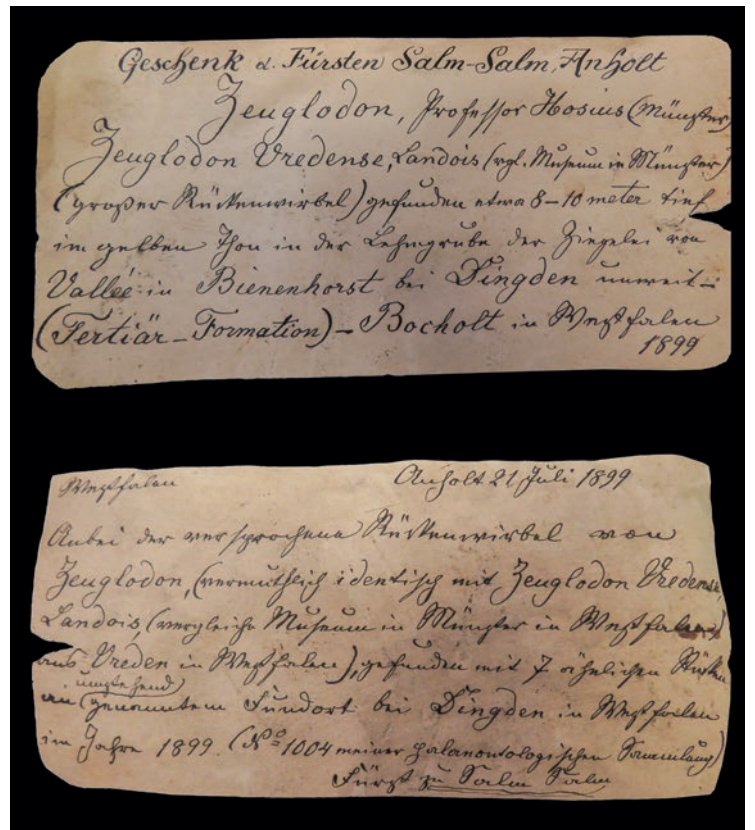 Geschenk d. Fürsten Salm-Salm, Anholt
Zeuglodon, Professor Hosius (Münster)
Zeuglodon Vredense, Landois (vgl. Museum in Münster)
(großer Rückenwirbel) gefunden etwa 8–10 meter tief
im gelben Thon in der Lehmgrube der Ziegelei von
Vallée in Bienenhorst bei Dingden unweit
(Tertiär-Formation) – Bocholt in Westfalen
1899
Westfalen
Anholt 21 Juli 1899
Anbei der versprochene Rückenwirbel von
Zeuglodon, (vermuthlich identisch mit Zeuglodon Vredense,
Landois, (vergleiche Museum in Münster in Westfalen)
aus Vreden in Westfalen), gefunden mit 7 ähnlichen Stücken
umstehend
an genanntem Fundort bei Dingden in Westfalen
im Jahre 1899. (No 1004 meiner palaeontologischen Sammlung)
Fürst zu Salm Salm